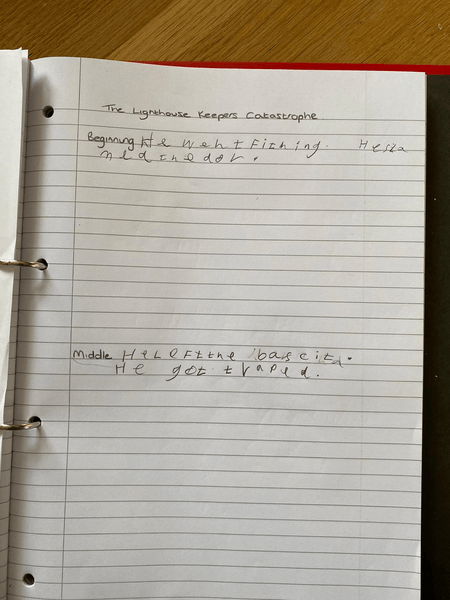 The Lighthouse Keepers Catastrophe
Beginning He wеht Fithing. Hesla
med the dor.
Middle HeLeFtthe bascit.
He got traped.